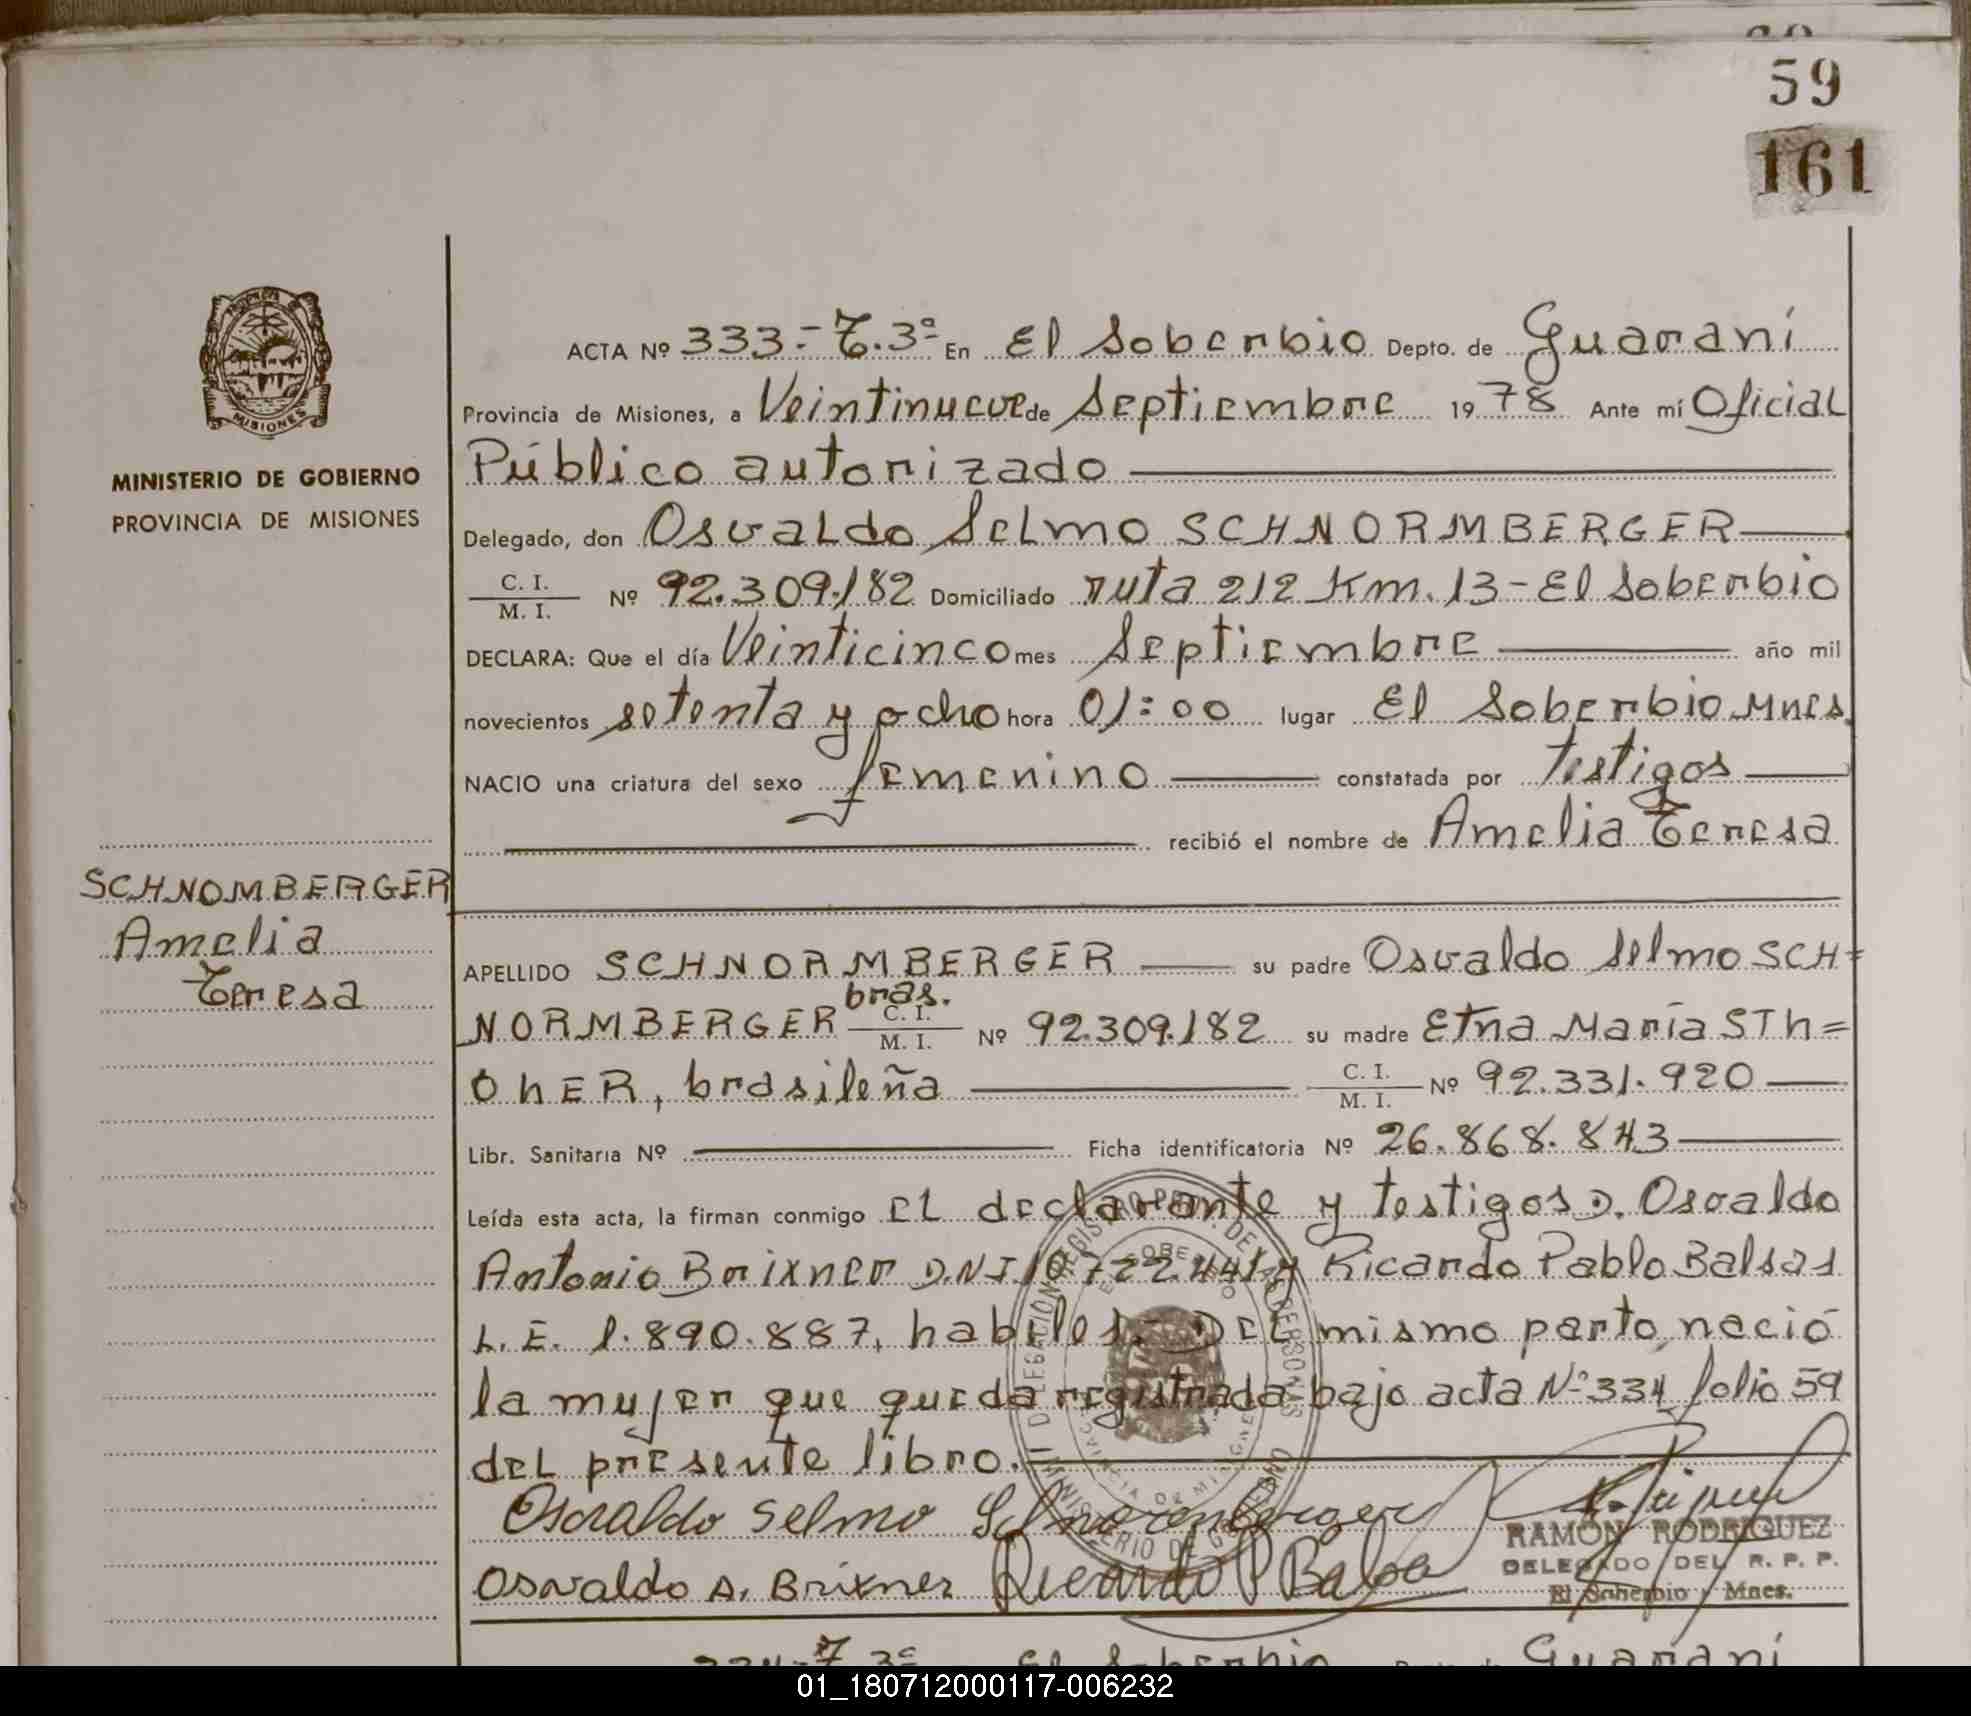 59
161
MISIONES
MINISTERIO DE GOBIERNO
PROVINCIA DE MISIONES
ACTA Nº 333.- T.3º En El Soberbio Depto. de Guaraní
Provincia de Misiones, a Veintinueve de Septiembre 1978 Ante mí Oficial
Público autorizado
Delegado, don Osvaldo Selmo SCHNORMBERGER
C. I.
M. I. Nº 92.309.182 Domiciliado ruta 212 Km. 13 - El Soberbio
DECLARA: Que el día Veinticinco mes Septiembre año mil
novecientos setenta y ocho hora 01:00 lugar El Soberbio Mnes.
NACIO una criatura del sexo femenino constatada por testigos
recibió el nombre de Amelia Teresa
SCHNOMBERGER
Amelia
Teresa
APELLIDO SCHNORMBERGER su padre Osvaldo Selmo SCH=
bras.
NORMBERGER C. I. M. I. Nº 92.309.182 su madre Etna María STh=
OhER, brasileña C. I. M. I. Nº 92.331.920
Libr. Sanitaria Nº Ficha identificatoria Nº 26.868.843
Leída esta acta, la firman conmigo El declarante y testigos D. Osvaldo
Antonio Brixner D.N.I 10.722.441 y Ricardo Pablo Balsas
L.E. 1.890.887, habiles.- Del mismo parto, nació
la mujer que queda registrada bajo acta Nº 334 folio 59
del presente libro.
Osvaldo Selmo Schnoremberger
RAMON RODRIGUEZ
DELEGADO DEL R. P. P.
El Soberbio - Mnes.
Osvaldo A. Brixner Ricardo P Balsa
334.- T. 3º El Soberbio Guaraní
01_180712000117-006232